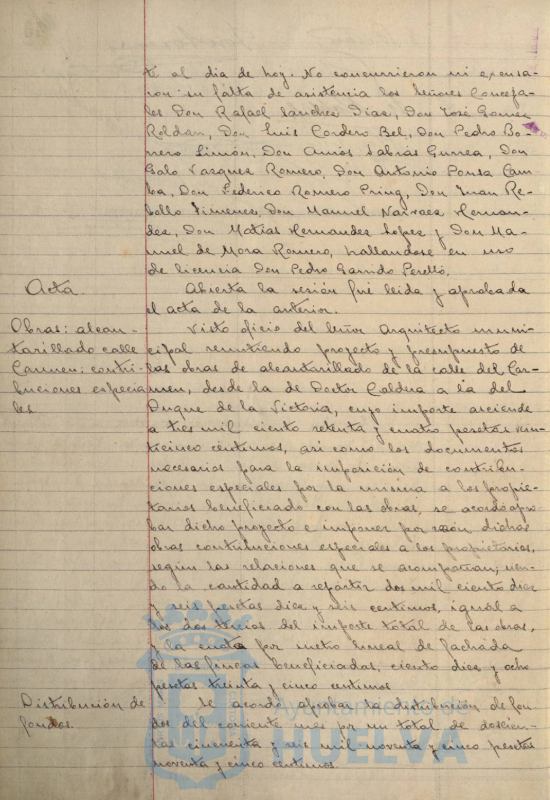 te al dia de hoy. No concurrieron ni excusa-
ron su falta de asistencia los señores Conceja-
les Don Rafael Sanchez Diaz, Don José Gomez
Roldan, Don Luis Cordero Bel, Don Pedro Bo-
rrero Limón, Don Amós Sabrás Gurrea, Don
Galo Vazquez Romero, Don Antonio Ponsa Cam-
ba, Don Federico Romero Pring, Don Juan Re-
bollo Jimenez, Don Manuel Narvaez Hernan-
dez, Don Matias Hernandez Lopez y Don Ma-
nuel de Mora Romero, hallandose en uso
de licencia Don Pedro Garrido Perelló.
Acta. Abierta la sesión fué leida y aprobada
el acta de la anterior.
Obras: alcan- Visto oficio del señor Arquitecto muni-
tarillado calle cipal remitiendo proyecto y presupuesto de
Carmen: contri- las obras de alcantarillado de la calle del Car-
buciones especia men, desde la de Doctor Caldera a la del
les Duque de la Victoria, cuyo importe asciende
a tres mil ciento setenta y cuatro pesetas vein-
ticinco centimos, asi como los documentos
necesarios para la imposición de contribu-
ciones especiales por la misma a los propie-
tarios beneficiado con las obras, se acordó apro-
bar dicho proyecto e imponer por razón dichas
obras contribuciones especiales a los propietarios,
según las relaciones que se acompañan; sien-
do la cantidad a repartir dos mil ciento diez
y seis pesetas diez y seis centimos, iguál a
los dos tercios del importe total de las obras,
y la cuota por metro lineal de fachada
de las fincas beneficiadas, ciento diez y ocho
pesetas treinta y cinco centimos.
Distribución de Se acordó aprobar la distribución de fon-
fondos. dos del corriente mes por un total de doscien-
tas cincuenta y seis mil noventa y cinco pesetas
noventa y cinco centimos.
Ayuntamiento de
HUELVA